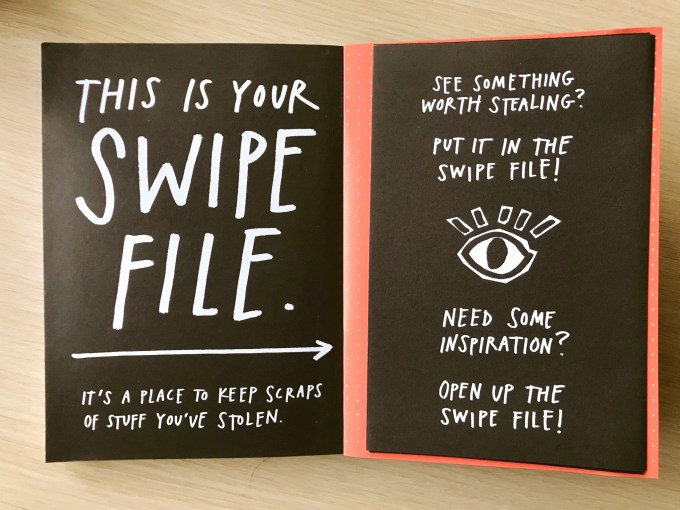 THIS IS YOUR
SWIPE
FILE.
IT'S A PLACE TO KEEP SCRAPS
OF STUFF YOU'VE STOLEN.
SEE SOMETHING
WORTH STEALING?
PUT IT IN THE
SWIPE FILE!
NEED SOME
INSPIRATION?
OPEN UP THE
SWIPE FILE!